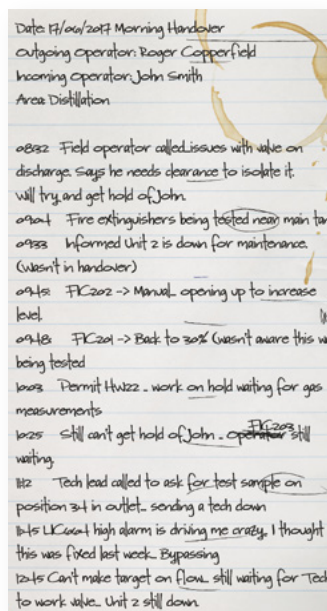 Date: 17/06/2017 Morning Handover
Outgoing Operator: Roger Copperfield
Incoming Operator: John Smith
Area: Distillation
0832 Field operator called_issues with valve on
discharge. Says he needs clearance to isolate it.
Will try and get hold of John.
0904 Fire extinguishers being tested near main
0933 Informed Unit 2 is down for maintenance.
(wasn't in handover)
0945: FIC202 -> Manual_ opening up to increase
level.
0948: FIC201 -> Back to 30% (wasn't aware this
being tested
1003 Permit HW22 - work on hold waiting for gas
measurements
FIC203
1025 Still can't get hold of John - operator still
waiting.
1112 Tech lead called to ask for test sample on
position 34 in outlet_ sending a tech down
high alarm is driving me crazy. I thought
this was fixed last week_ Bypassing
1245 Can't make target on flow_ still waiting for Tech
to work valve_ Unit 2 still down.